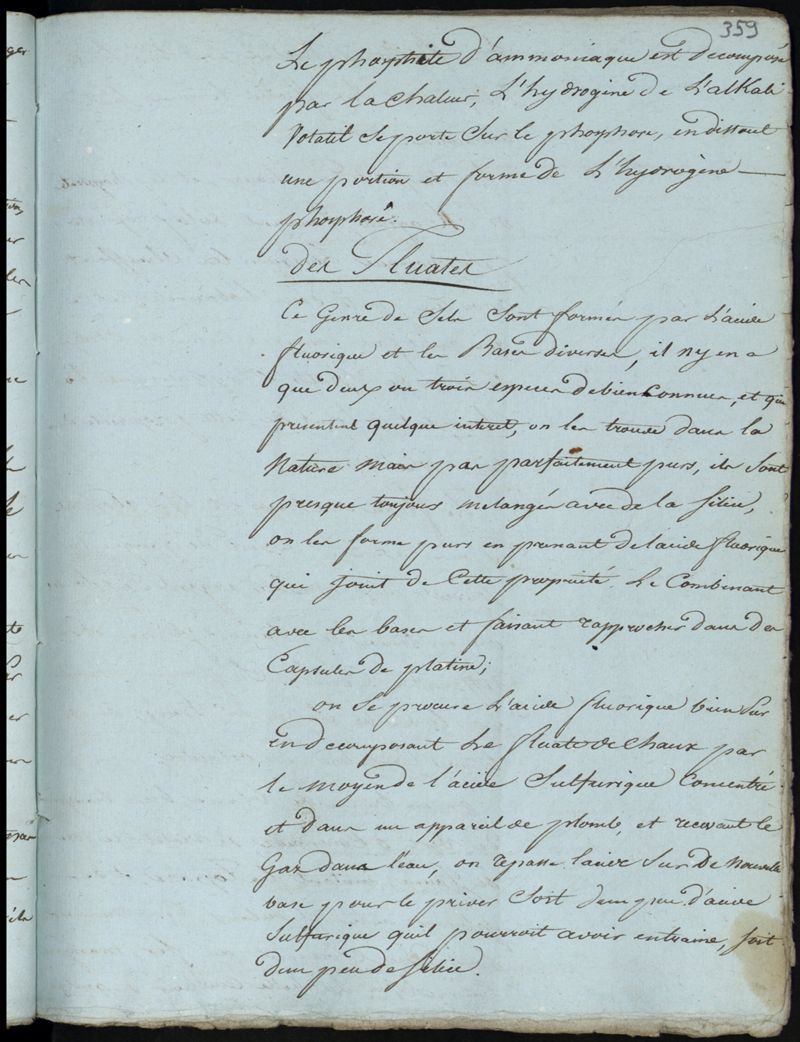 359
Le phosphite d'ammoniaque est decomposé
par la chaleur, L'hydrogène de L'alkali
Volatil se porte sur le phosphore, en dissout
une portion et forme de L'hydrogène
phosphoré.
des Fluates
Ce Genre de Sels sont formés par L'acide
fluorique et les Bases diverses, il ny en a
que deux ou trois especes de bien connues, et qui
presentent quelque interet, on les trouve dans la
Nature mais pas parfaitement purs, ils sont
presque toujours melangés avec de la silice,
on les forme purs en prenant de lacide fluorique
qui jouit de Cette propriété Le Combinant
avec les bases et faisant rapprocher dans des
Capsules de platine;
on se procure L'acide fluorique bien Pur
En decomposant Le fluate de Chaux par
le moyen de l'acide Sulfurique Concentré
et dans un appareil de plomb, et recevant le
Gaz dans l'eau, on repasse lacide Sur De Nouvelle
base pour le priver Soit dun peu d'acide
Sulfurique quil pourroit avoir entrainé, soit
dun peu de silice.